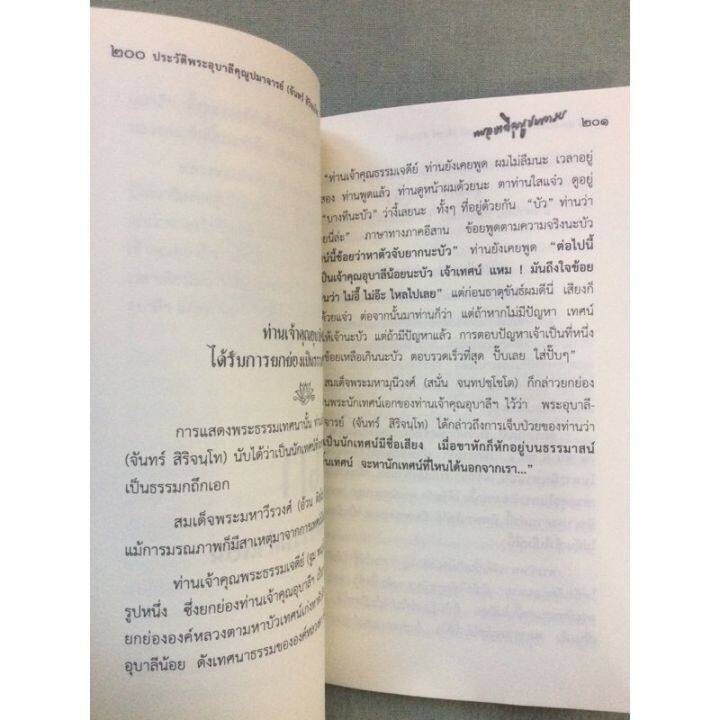 ๒๐๐ ประวัติพระอุบาลีคุณูปมาจารย์ (จันทร์
ท่านเจ้าคุณ
ได้รับการยกย่อง
การแสดงพระธรรมเทศนานั้น
(จันทร์ สิริจนฺโท) นับได้ว่าเป็น
เป็นธรรมกถึกเอก
สมเด็จพระมหาวีรวงศ์ (อ้วน
แม้การมรณภาพก็มีสาเหตุมาจากการ
ท่านเจ้าคุณพระธรรมเจดีย์
รูปหนึ่ง ซึ่งยกย่องท่านเจ้าคุณอุบาลีฯ
ยกย่ององค์หลวงตามหาบัวเทศน์เก่ง
อุบาลีน้อย ดังเทศนาธรรมขององค์
๒๐๑
"ท่านเจ้าคุณธรรมเจดีย์ ท่านยังเคยพูด ผมไม่ลืมนะ เวลาอยู่
สอง ท่านพูดแล้ว ท่านดูหน้าผมด้วยนะ ตาท่านใสแจ๋ว ดูอยู่
"บางทีนะบัว" ว่างี้เลยนะ ทั้งๆ ที่อยู่ด้วยกัน "บัว" ท่านว่า
ยนี่ล่ะ" ภาษาทางภาคอีสาน ข้อยพูดตามความจริงนะบัว
น์นี้ข้อยว่าหาตัวจับยากนะบัว" ท่านยังเคยพูด "ต่อไปนี้
เป็นเจ้าคุณอุบาลีน้อยนะบัว เจ้าเทศน์ แหม ! มันถึงใจข้อย
นว่า ไม่อี้ ไม่อ๊ะ ไหลไปเลย" แต่ก่อนธาตุขันธ์ผมดีนี่ เสียงก็
ด้วยแจ๋ว ต่อจากนั้นมาท่านก็ว่า แต่ถ้าหากไม่มีปัญหา เทศน์
ให้เจ้านะบัว แต่ถ้ามีปัญหาแล้ว การตอบปัญหาเจ้าเป็นที่หนึ่ง
ข้อยเหลือเกินนะบัว ตอบรวดเร็วที่สุด ปั๊บเลย ใส่ปั๊บๆ"
สมเด็จพระมหามุนีวงศ์ (สนั่น จนฺทปชฺโชโต) ก็กล่าวยกย่อง
นพระนักเทศน์เอกของท่านเจ้าคุณอุบาลีฯ ไว้ว่า พระอุบาลี-
จารย์ (จันทร์ สิริจนฺโท) ได้กล่าวถึงการเจ็บป่วยของท่านว่า
เป็นนักเทศน์มีชื่อเสียง เมื่อขาหักก็หักอยู่บนธรรมาสน์
นเทศน์ จะหานักเทศน์ที่ไหนได้นอกจากเรา..."